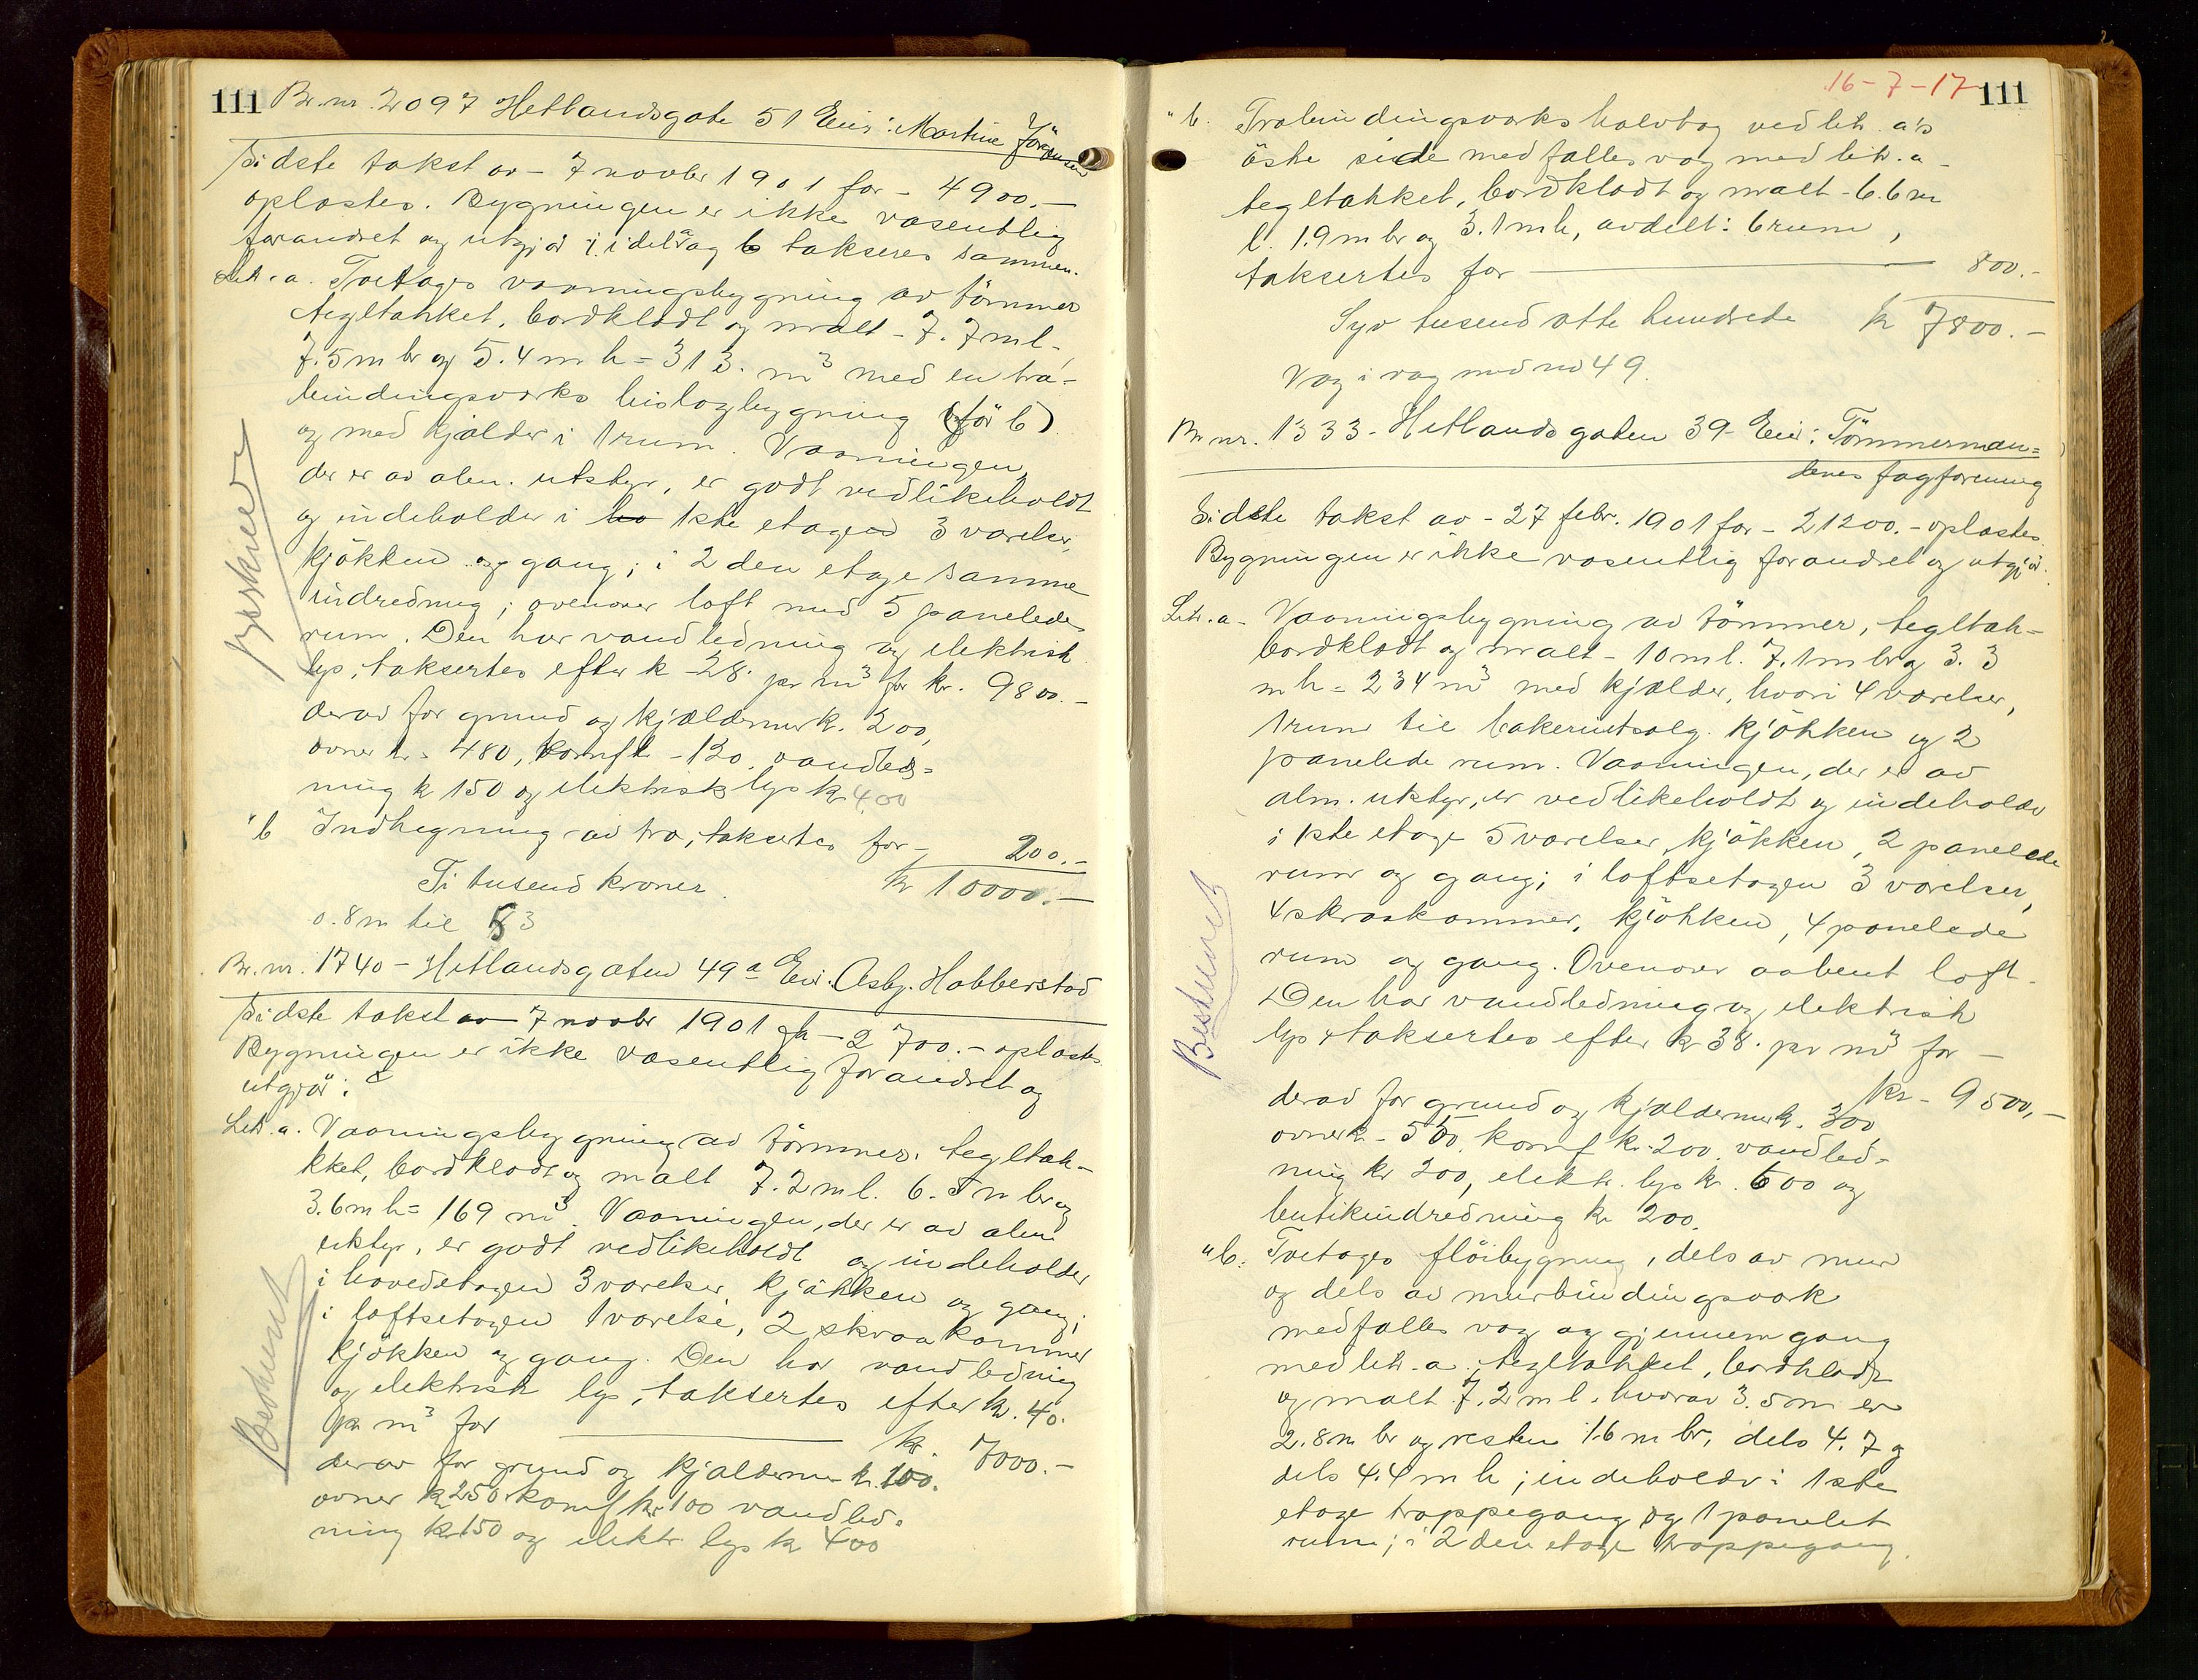 111 Br. nr. 2097 Hetlandsgate 51 Eier: Martine Jörgensen
Sidste takst av - 7 novbr 1901 for - 4900.-
oplæstes. Bygningen er ikke væsentlig
forandret og utgjør i idet a og b takseres sammen.
Litr. a. Toetages vaaningsbygning av tömmer
tegltækket, bordklædt og malt - 7.7 m l.
7.5 m br og 5.4 m h = 313. m³ med en træ-
bindingsverks bislagbygning (før b)
og med kjælder i 1 rum. Vaaningen,
der er av alm. utstyr, er godt vedlikeholdt
og indeholder i 1ste etage 3 værelser,
kjökken og gang; i 2den etage samme
indredning; ovenover loft med 5 panelede
rum. Den har vandledning og elektrisk
lys; taksertes efter k - 28. pr m³ for kr. 9800.-
derav for grund og kjældermur k. 200,
ovner k. 480, komf k - 130. vandled-
ning k 150 og elektrisk lys k 400
" b Indhegning av træ, taksertes for - 200.-
Ti tusend kroner. kr 10000.-
0.8 m til 53
Beskrevet
Br. nr. 1740 - Hetlandsgaten 49a Eier. Asbj. Habberstad
Sidste takst av 7 novbr 1901 for - 2700.- oplæstes.
Bygningen er ikke væsentlig forandret og
utgjör:
Litr. a. Vaaningsbygning av tömmer, tegltæk-
ket, bordklædt og malt 7.2 m l. 6.5 m br og
3.6 m h = 169 m³. Vaaningen, der er av alm.
utstyr, er godt vedlikeholdt og indeholder
i hovedetagen 3 værelser, kjökken og gang;
i loftsetagen 1 værelse, 2 skraakammer
kjökken og gang. Den har vandledning
og elektrisk lys, taksertes efter kr. 40.
pr m³ for kr. 7000.-
derav for grund og kjældermur k. 100.
ovner k 250 komf kr. 100 vandled-
ning kr 150 og elektr. lys k 400
Beskrevet
16-7-17 111
" b. Træbindingsverks halvtag ved litr. a's
öste side med fælles væg med litr. a -
tegltækket, bordklædt og malt - 6.6 m
l. 1.9 m br og 3.1 m h, avdelt i 6 rum,
taksertes for 800.-
Syv tusend otte hundrede kr 7800.-
Væg i væg med no 49.
Br nr. 1333 - Hetlandsgaten 39 - Eier: Tömmerman-
denes fagforening
Sidste takst av - 27 febr. 1901 for - 21200.- oplæstes.
Bygningen er ikke væsentlig forandret og utgjör:
Litr. a - Vaaningsbygning av tömmer, tegltæk-
bordklædt og malt - 10 m l. 7.1 m br og 3.3
m h = 234 m³ med kjælder, hvori 4 værelser,
1 rum til bakeriutsalg. kjökken og 2
panelede rum. Vaaningen, der er av
alm. utstyr, er vedlikeholdt og indeholder
i 1ste etage 5 værelser, kjökken, 2 panelede
rum og gang; i loftsetagen 3 værelser,
4 skraakammer, kjökken, 4 panelede
rum og gang. Ovenover aabent loft.
Den har vandledning og elektrisk
lys taksertes efter kr 38. pr m³ for -
kr - 9500,-
derav for grund og kjældermur k. 300
ovner k - 500. komf kr. 200. vandled-
ning kr 200, elektr. lys kr. 600 og
butikindredning kr 200.
" b. Toetages flöibygning, dels av mur
og dels av murbindingsverk
med fælles væg og gjennemgang
med litr. a. tegltækket, bordklædt
og malt 7.2 m l. hvorav 3.5 m er
2.8 m br og resten 1.6 m br, dels 4.7 og
dels 4.4 m h; indeholder i 1ste
etage trappegang og 1 panelet
rum; i 2den etage trappegang.
Beskrevet